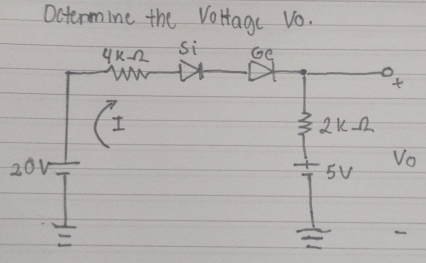 Determine the Voltage Vo.
4K-Ω
Si
Ge
+
I
2K-Ω
20V
5V
Vo
-